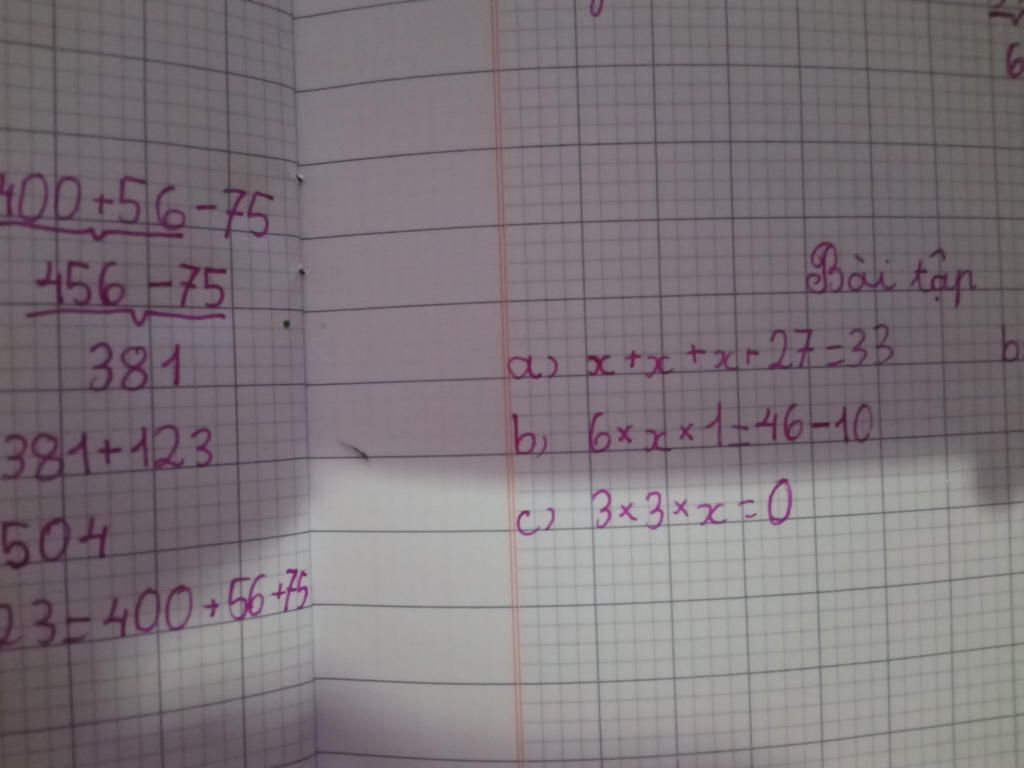 400+56-75
456-75
381
381+123
504
23=400+56+75
Bài tập
a) x+x+x+27=33
b) 6×x×1=46-10
c) 3×3×x=0
b
6